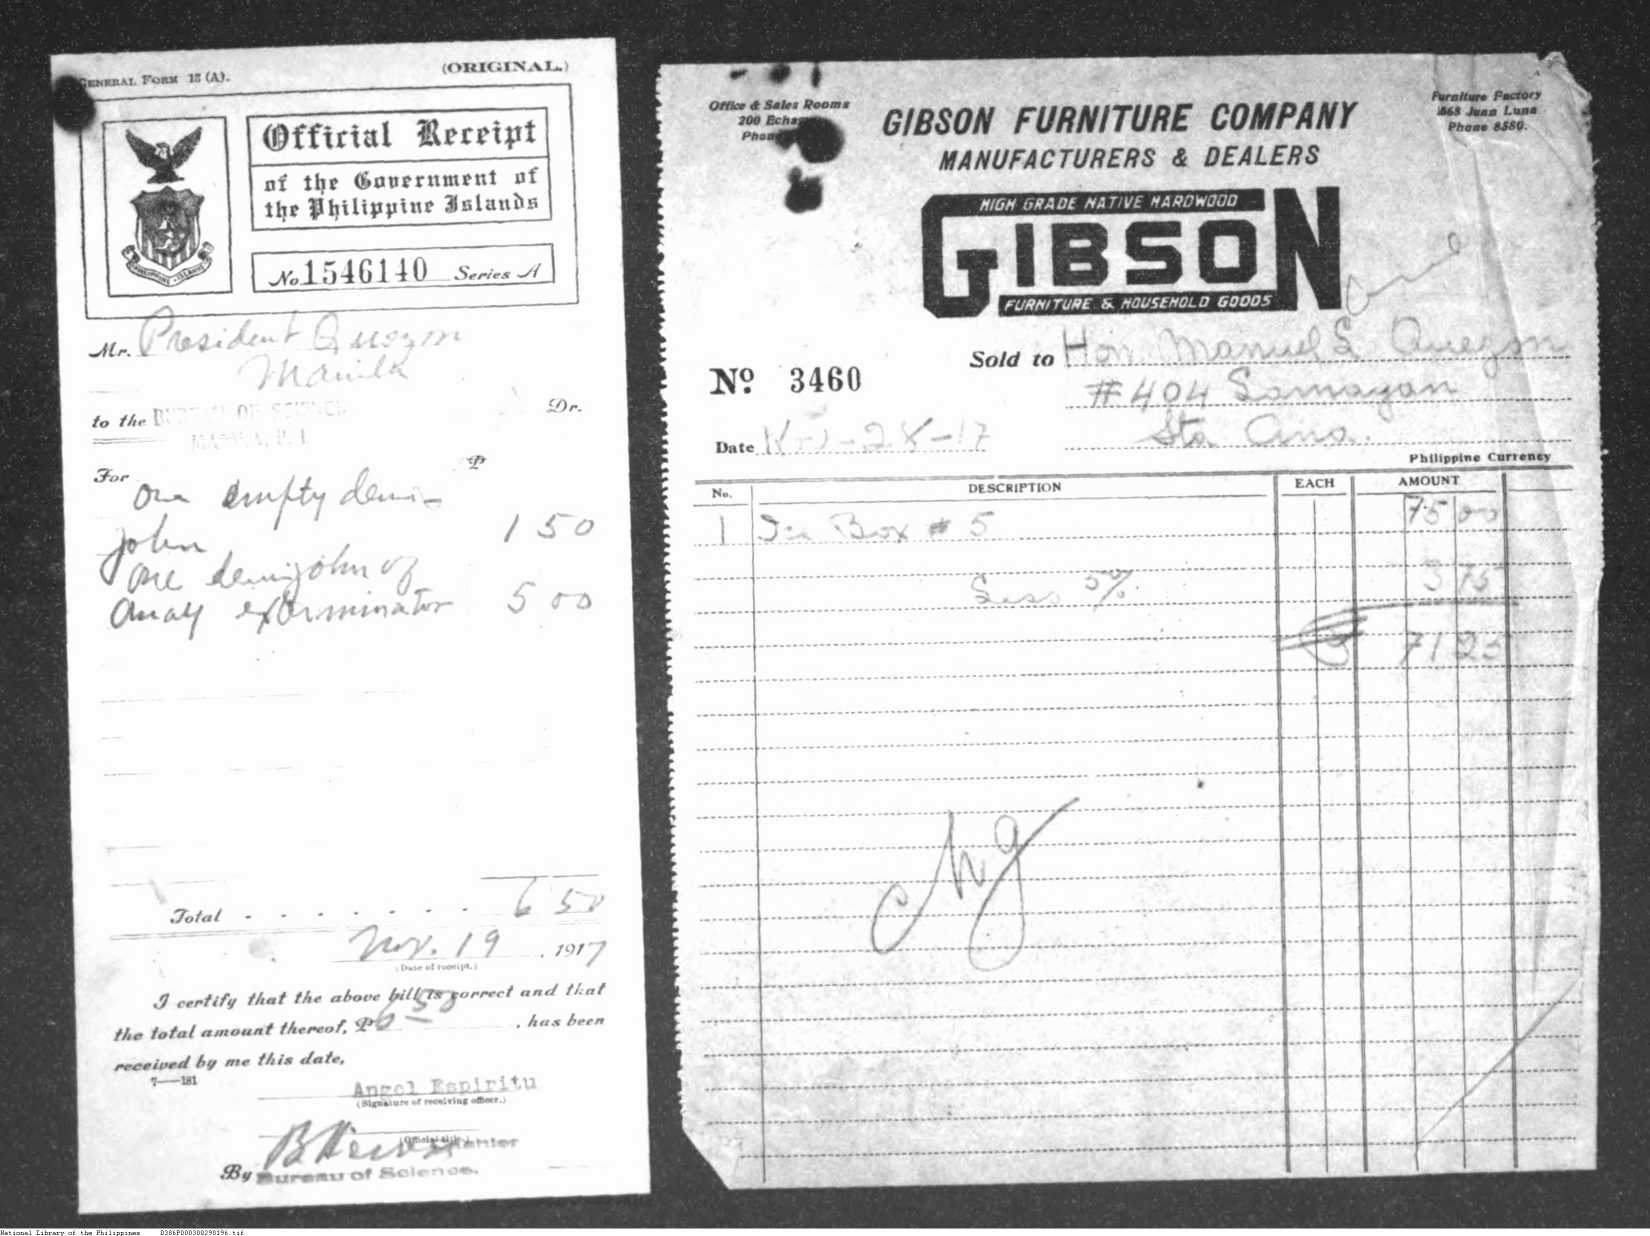 GENERAL FORM 13 (A).
(ORIGINAL.)
Official Receipt
of the Government of
the Philippine Islands
PHILIPPINE ISLANDS
No 1546140 Series A
Mr. President Quezon
Manila
to the BUREAU OF SCIENCE Dr.
MANILA, P. I.
For ₱
one empty demi-
john 1 50
One demijohn of
anay exterminator 5 00
Total - - - - - - - 6 50
Nov. 19, 1917
(Date of receipt.)
I certify that the above bill is correct and that
the total amount thereof, ₱6.50, has been
received by me this date,
7—181
Angel Espiritu
(Signature of receiving officer.)
(Official title.)
By
Bureau of Science.
Office & Sales Rooms
200
Furniture Factory
668 Juan Luna
Phone 8580.
GIBSON FURNITURE COMPANY
MANUFACTURERS & DEALERS
HIGH GRADE NATIVE HARDWOOD
GIBSON
FURNITURE & HOUSEHOLD GOODS
Sold to Hon. Manuel L. Quezon
Nº 3460
#404 Lamayan
Date Nov-28-17
Sta Ana.
Philippine Currency
No. DESCRIPTION EACH AMOUNT
1 Ice Box # 5 75 00
Less 5% 3 75
71 25
National Library of the Philippines D386P000300290196.tif